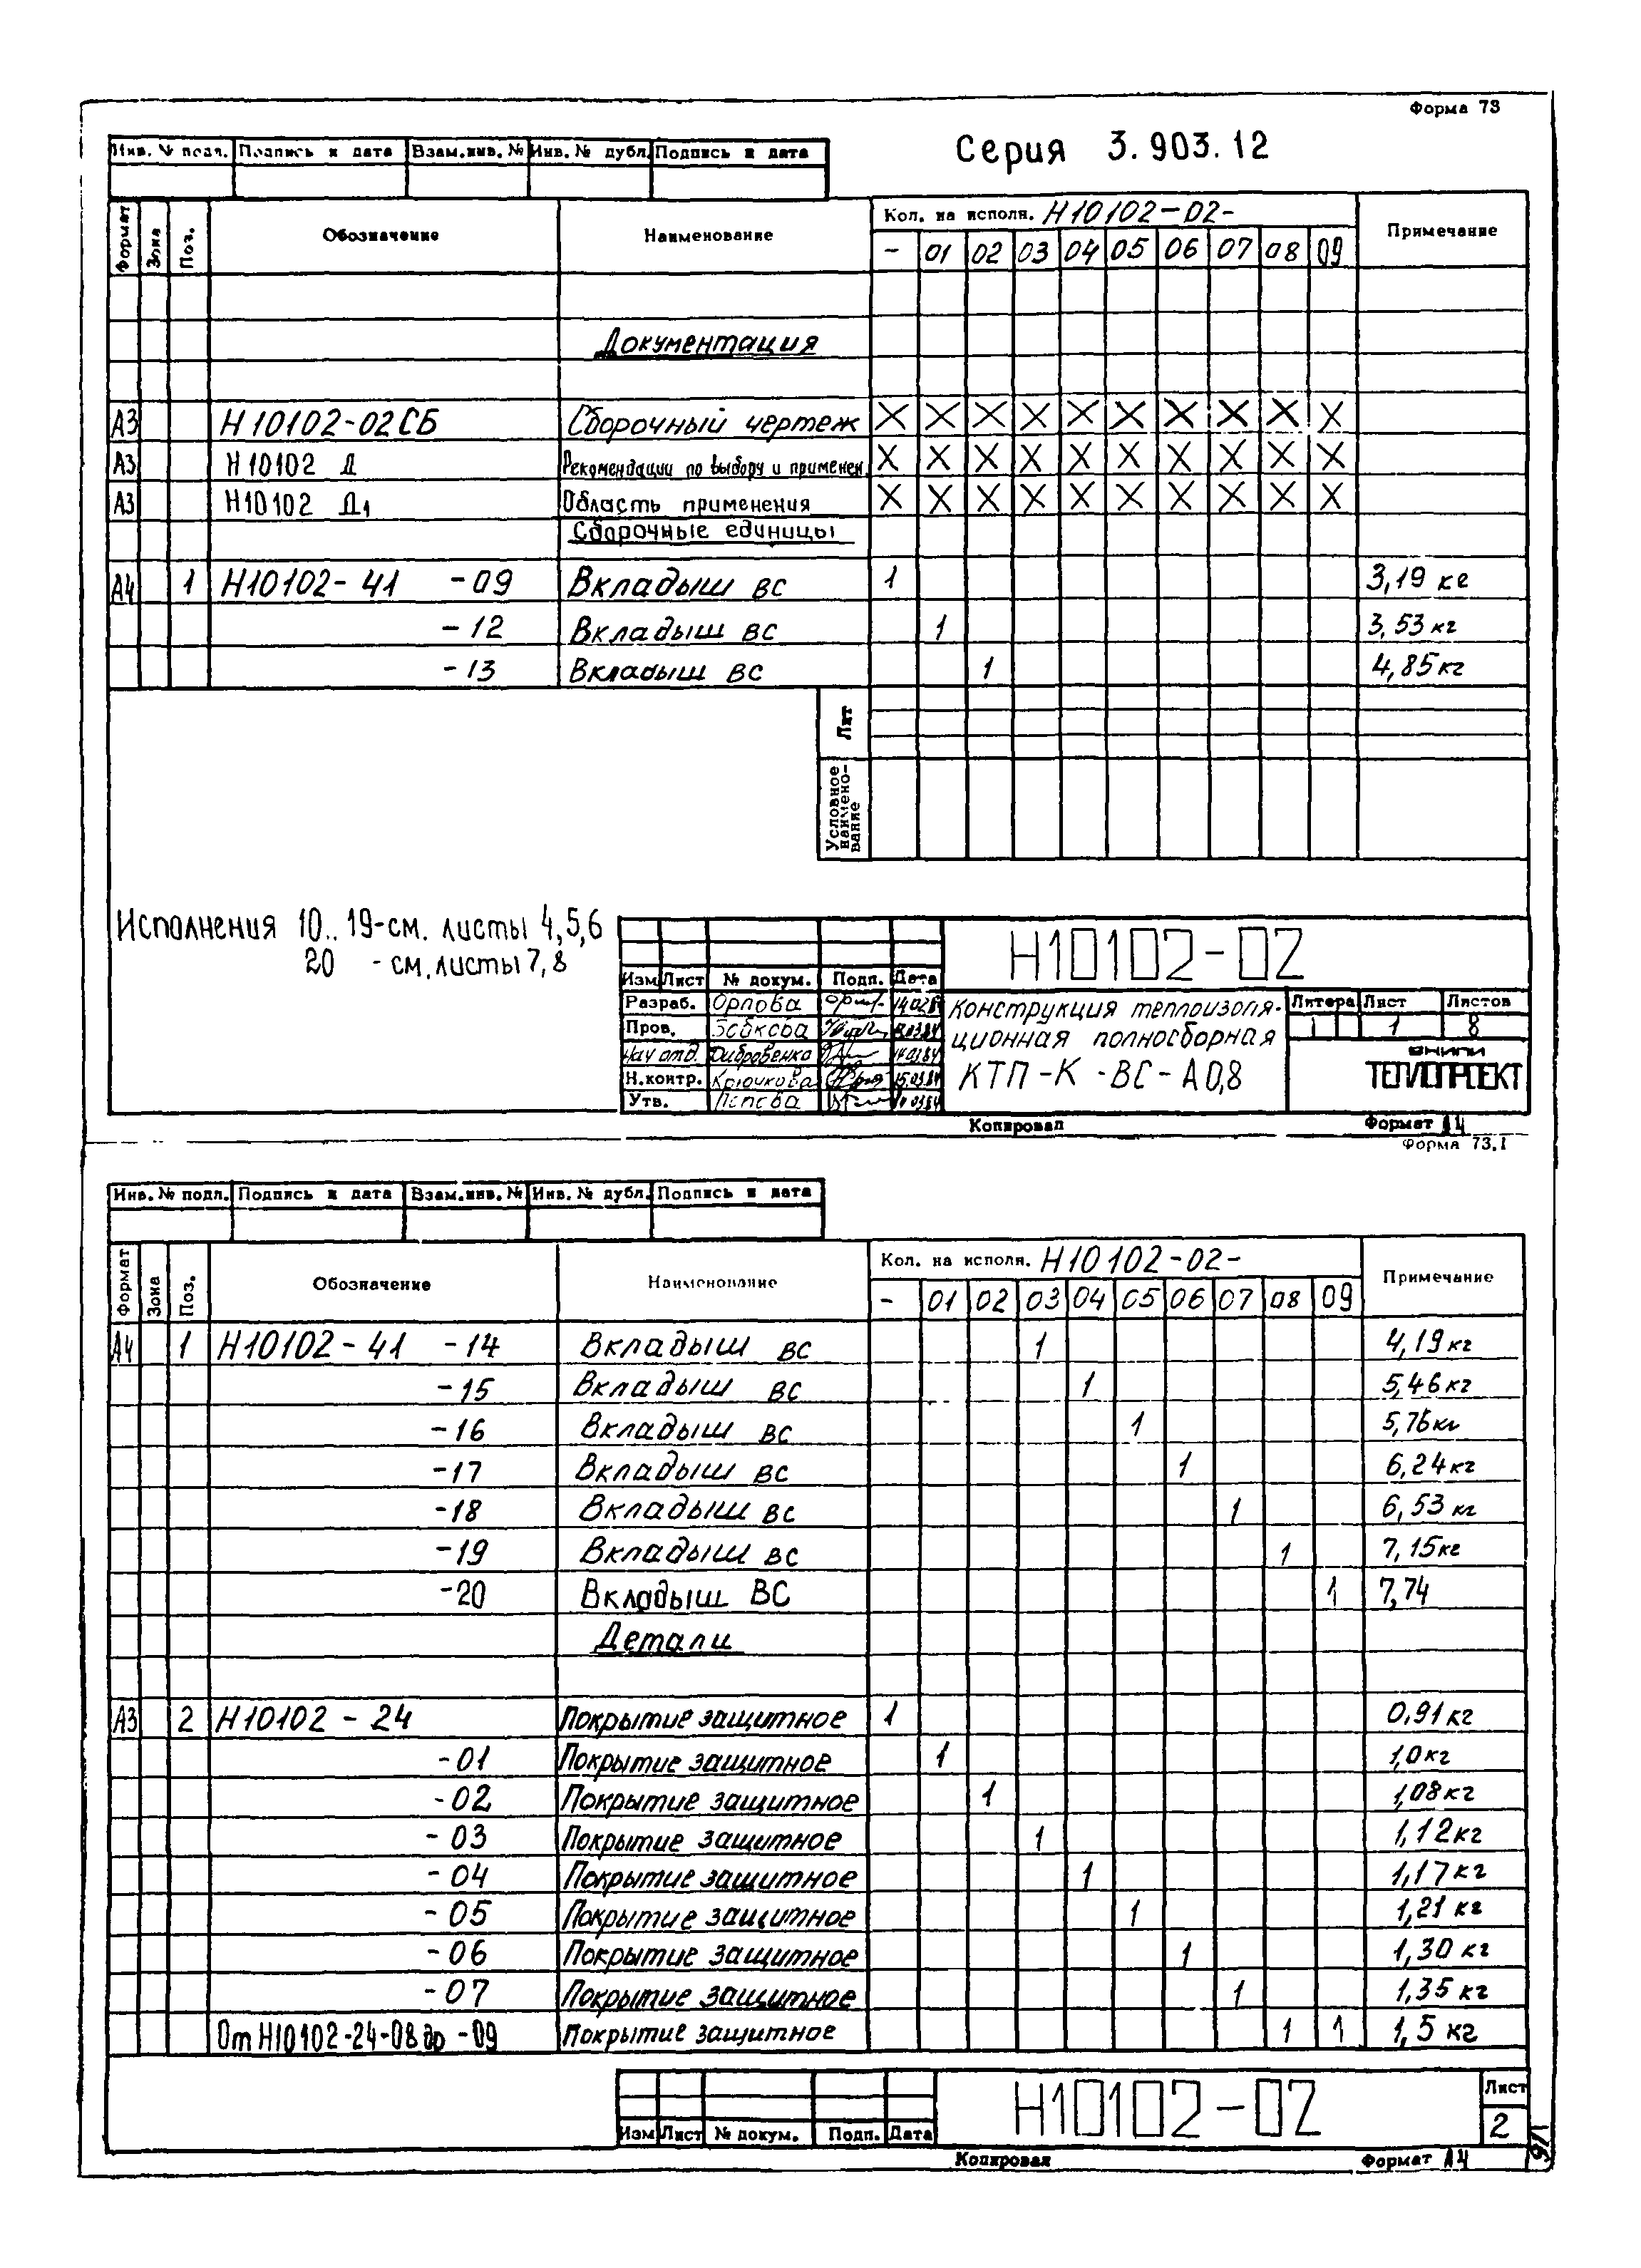 Форма 73
Серия 3.903.12
Инв. № подл. Подпись и дата Взам.инв. № Инв. № дубл. Подпись и дата
Формат Зона Поз. Обозначение Наименование Кол. на исполн. Н10102-02- Примечание
- 01 02 03 04 05 06 07 08 09
Документация
А3 Н10102-02СБ Сборочный чертеж X X X X X X X X X X
А3 Н10102 Д Рекомендации по выбору и применен. X X X X X X X X X X
А3 Н10102 Д1 Область применения X X X X X X X X X X
Сборочные единицы
А4 1 Н10102-41 -09 Вкладыш ВС 1 3,19 кг
-12 Вкладыш ВС 1 3,53 кг
-13 Вкладыш ВС 1 4,85 кг
Лит
Условное наименование
Исполнения 10..19-см. листы 4,5,6
20 - см. листы 7,8
Н10102-02
Изм Лист № докум. Подп. Дата
Разраб. Орлова
Пров.
Нач отд.
Н.контр. Крючкова
Утв. Попова
Конструкция теплоизоля-
ционная полносборная
КТП-К-ВС-А0,8
Литера Лист Листов
1 8
ВНИПИ
ТЕПЛОПРОЕКТ
Копировал Формат А4
Форма 73.1
Инв. № подл. Подпись и дата Взам.инв. № Инв. № дубл. Подпись и дата
Формат Зона Поз. Обозначение Наименование Кол. на исполн. Н10102-02- Примечание
- 01 02 03 04 05 06 07 08 09
А4 1 Н10102-41 -14 Вкладыш ВС 1 4,19 кг
-15 Вкладыш ВС 1 5,46 кг
-16 Вкладыш ВС 1 5,76 кг
-17 Вкладыш ВС 1 6,24 кг
-18 Вкладыш ВС 1 6,53 кг
-19 Вкладыш ВС 1 7,15 кг
-20 Вкладыш ВС 1 7,74
Детали
А3 2 Н10102-24 Покрытие защитное 1 0,91 кг
-01 Покрытие защитное 1 1,0 кг
-02 Покрытие защитное 1 1,08 кг
-03 Покрытие защитное 1 1,12 кг
-04 Покрытие защитное 1 1,17 кг
-05 Покрытие защитное 1 1,21 кг
-06 Покрытие защитное 1 1,30 кг
-07 Покрытие защитное 1 1,35 кг
От Н10102-24-08 до -09 Покрытие защитное 1 1 1,5 кг
Н10102-02
Лист
2
Изм Лист № докум. Подп. Дата
Копировал Формат А4